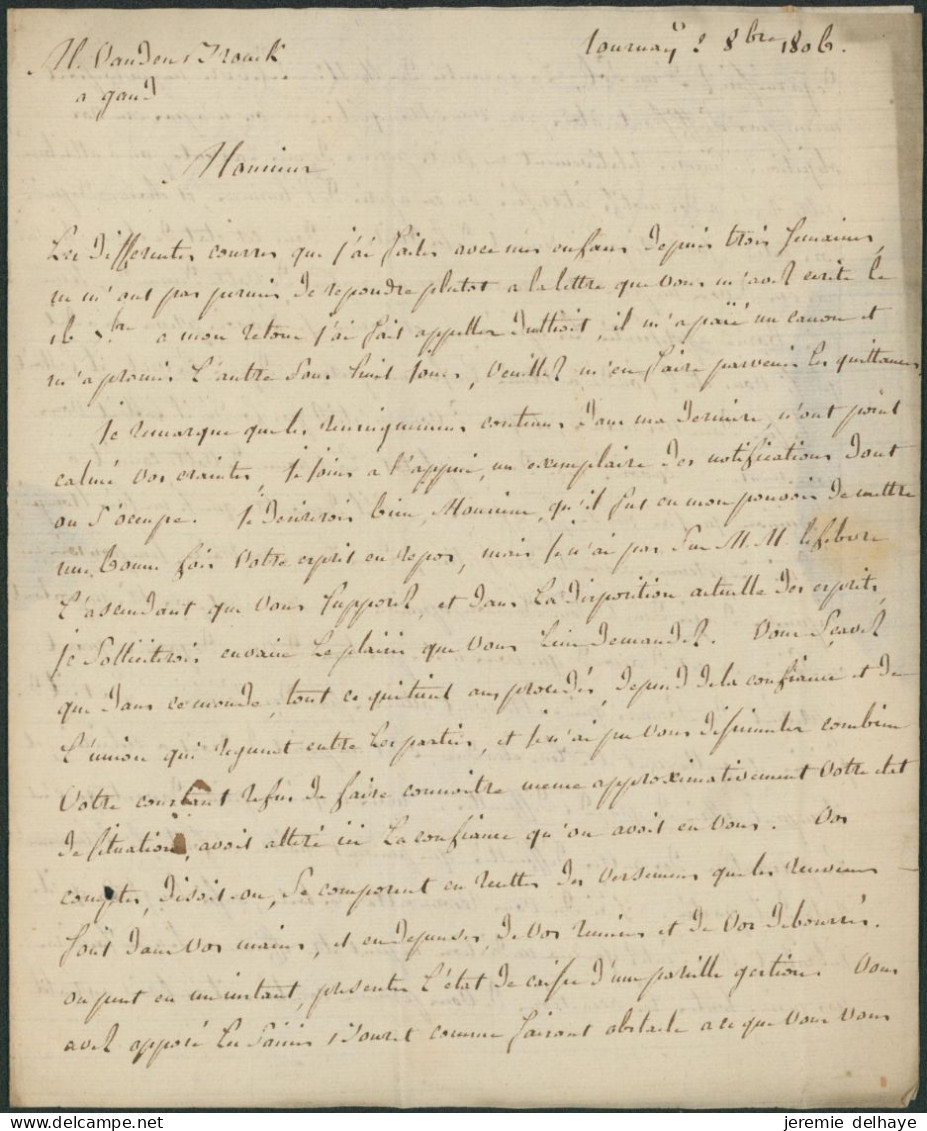 M. Vanden
a gand
tournay 2 8bre 1806.
Monsieur
Les differentes courses que j'ai faites avec mes enfans depuis trois semaines,
ne m'ont pas permis de repondre plutot a la lettre que vous m'avez ecrite le
16 7.bre a mon retour j'ai fait appeller il m'a païé un canon et
m'a promis l'autre sous huit jours, veuillez m'en faire parvenir les quittances,
je remarque que les renseignemens contenus dans ma derniere, n'ont point
calmé vos craintes, je joins a l'appui, un exemplaire des notifications dont
on s'occupe. je desirerois bien, Monsieur, qu'il fut en mon pouvoir de mettre
une bonne fois votre esprit en repos, mais je n'ai pas sur M. M. lefebvre
l'ascendant que vous supposez, et dans la disposition actuelle des esprits,
je solliciterois envain le plaisir que vous leur demandez. Vous sçavez
que dans ce monde, tout ce qui tient aux procedés, depend de la confiance et de
l'union qui regnent entre les parties, et je n'ai pu vous dissimuler combien
votre constant refus de faire connoitre meme approximativement votre etat
de situation, avoit alteré ici la confiance qu'on avoit en vous. Vos
comptes, disoit-on, se composent en recettes des versemens que les receveurs
font dans vos mains, et en depenses, de vos remises et de vos debourrés.
on peut en un instant, presenter l'état de caisse d'une pareille gestion. Vous
avez opposé les saisies comme faisant obstacle a ce que vous vous
jeremie delhaye